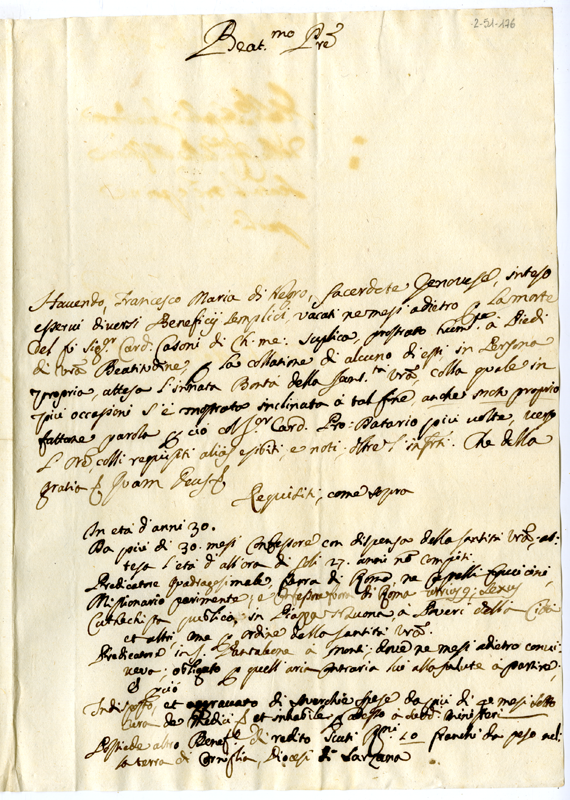 2-51-176
Beat.mo Pre
Havendo, Francesco Maria di Negro, Sacerdote Genovese, inteso
esservi diversi Beneficij semplici, vacati ne mesi adietro per la morte
del fu Sig.r Card. Casoni di Ch. me: suplica, prostrato humil.te a Piedi
di Vra Beatitudine, per la collatione di alcuno di essi in Persona
propria, attesa l'innata Bontà della Sant.tà Vra, colla quale in
più occasioni s'è mostrata inclinata a tal fine, anche motu proprio
fattone parola per ciò col Sig.r Card. Pro: Datario più volte, verso
l'Ore, colli requisiti alias esibiti e noti, oltre l'infrti. Che della
gratia &c. Quam Deus &c.
Requisiti, come sopra
In età d'anni 30.
Da più di 30. mesi Confessore con dispensa della Santità Vra, at-
tesa l'età d'all'ora di soli 27. anni non compiti.
Predicatore Quadragesimale, fuora di Roma, ne Capelli
Missionario parimente, e fuora di Roma
Catechista publico, in Piazza a Poveri della Città
et altri per ordine della Santità Vra.
Predicatore in S. Pantaleone a Monti, dove ne mesi adietro convi-
veva; obligato per quell'aria contraria alla salute a partire,
e per ciò
Indisposto, et aggravato di soverchie spese da più di 4 mesi sotto
cura de Medici, et inhabile adesso a detti ministeri
Possiede altro Benef.o di redito Scuti 20 franchi da peso nel-
la terra di Corniglia, Diocesi di Sarzana